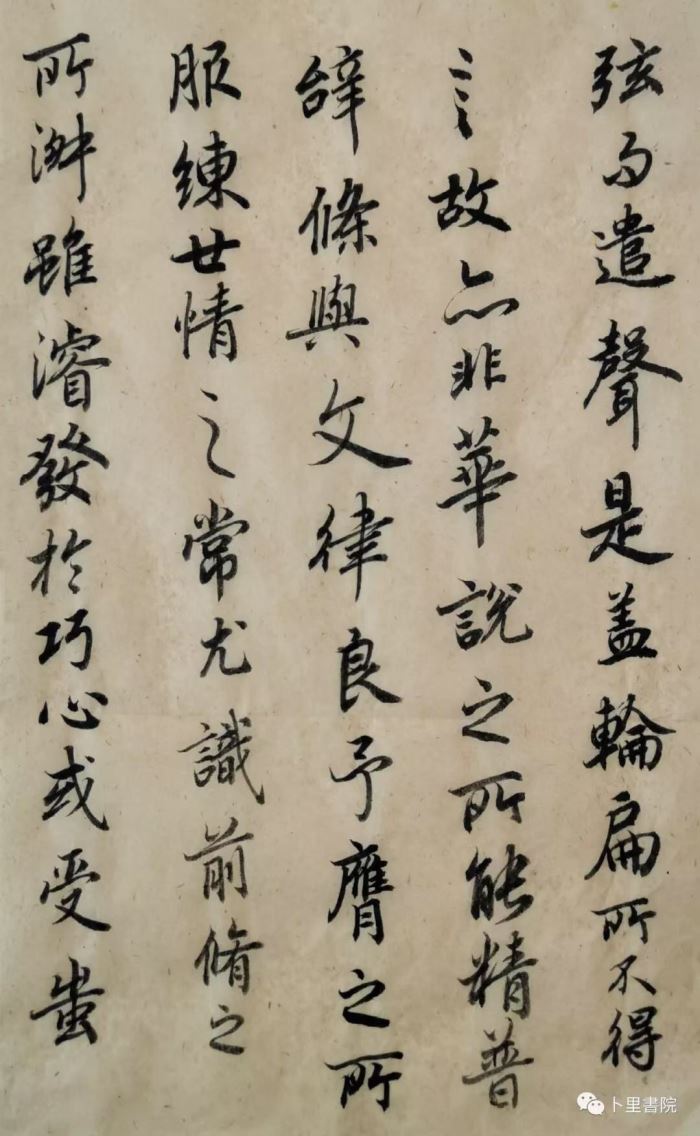 弦而遣聲是盖輪扁所不得
言故亦非華說之所能精普
辞條與文律良予膺之所
服練世情之常尤識前脩之
所淋雖濬發於巧心或受蚩
卜里書院